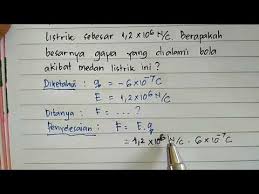 listrik sebesar 1,2 x 10⁶ N/C. Berapakah
besarnya gaya yang dialami bola
akibat medan listrik ini ?
Diketahui : q = -6 x 10⁻⁷ C
E = 1,2 x 10⁶ N/C
Ditanya : F = .... ?
Penyelesaian : F = E . q
= 1,2 x 10⁶ N/C . 6 x 10⁻⁷ C